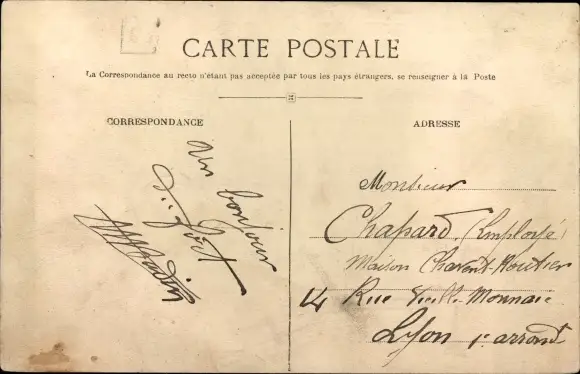 CARTE POSTALE
La Correspondance au recto n'étant pas acceptée par tous les pays étrangers, se renseigner à la Poste
CORRESPONDANCE
un bonjour
ADRESSE
Monsieur
Chapard (Employé)
Maison Charent-Routier
14 Rue Vieille Monnaie
Lyon 1r arrondt